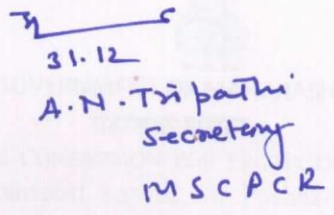 31.12
A.N. Tripathi
Secretary
MSCPCR